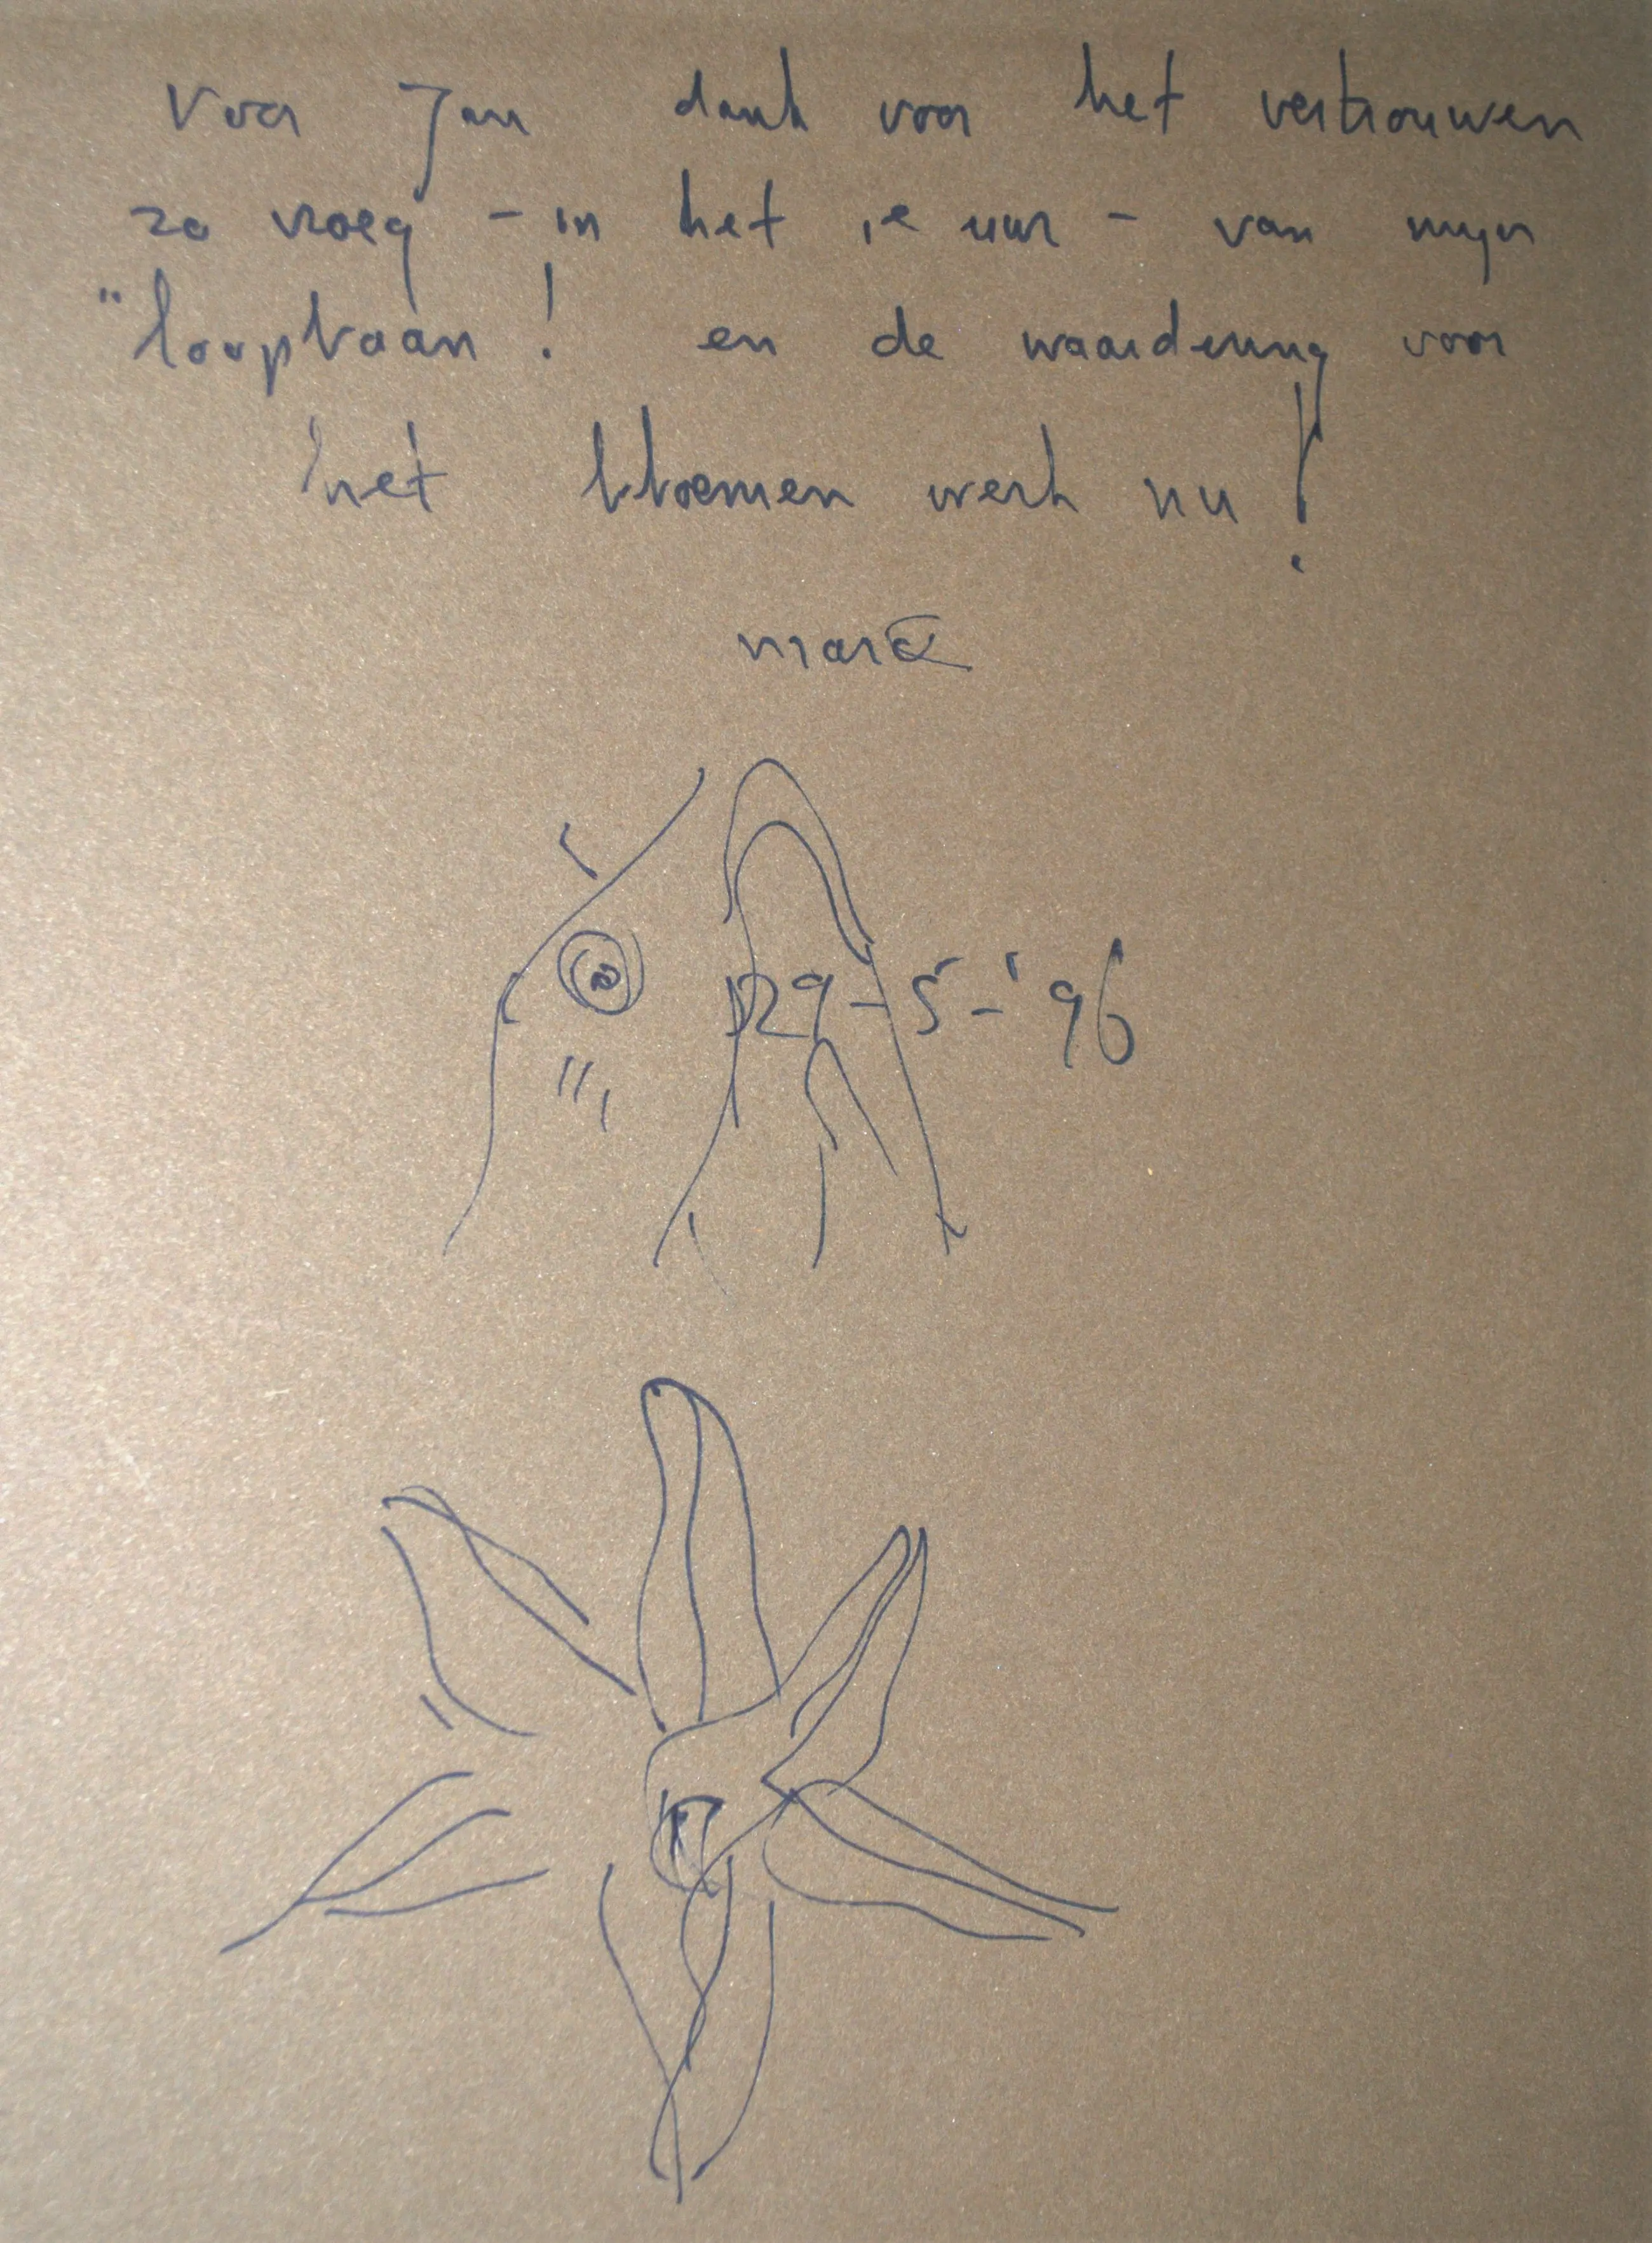 Voor Jan dank voor het vertrouwen
zo vroeg - in het 1e uur - van mijn
"loopbaan! en de waardering voor
het bloemen werk nu!
29-5-'96